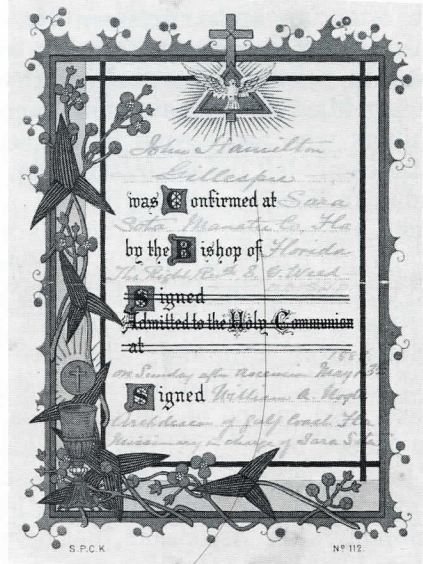 John Hamilton
Gillespie
was Confirmed at Sara
Sota Manatee Co. Fla
by the Bishop of Florida
The Right Revd E. G. Weed
Signed
Admitted to the Holy Communion
at
188
on Sunday after Ascension May 13th
Signed William A.
Archdeacon of Gulf Coast Fla
Missionary in charge of Sara Sota
S.P.C.K.
Nº 112.